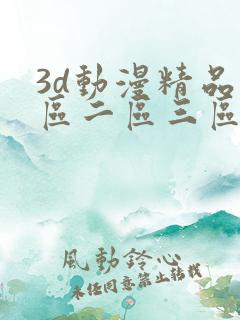 3d動漫精品
區二區三區
風動鈴心
未经同意禁止转载